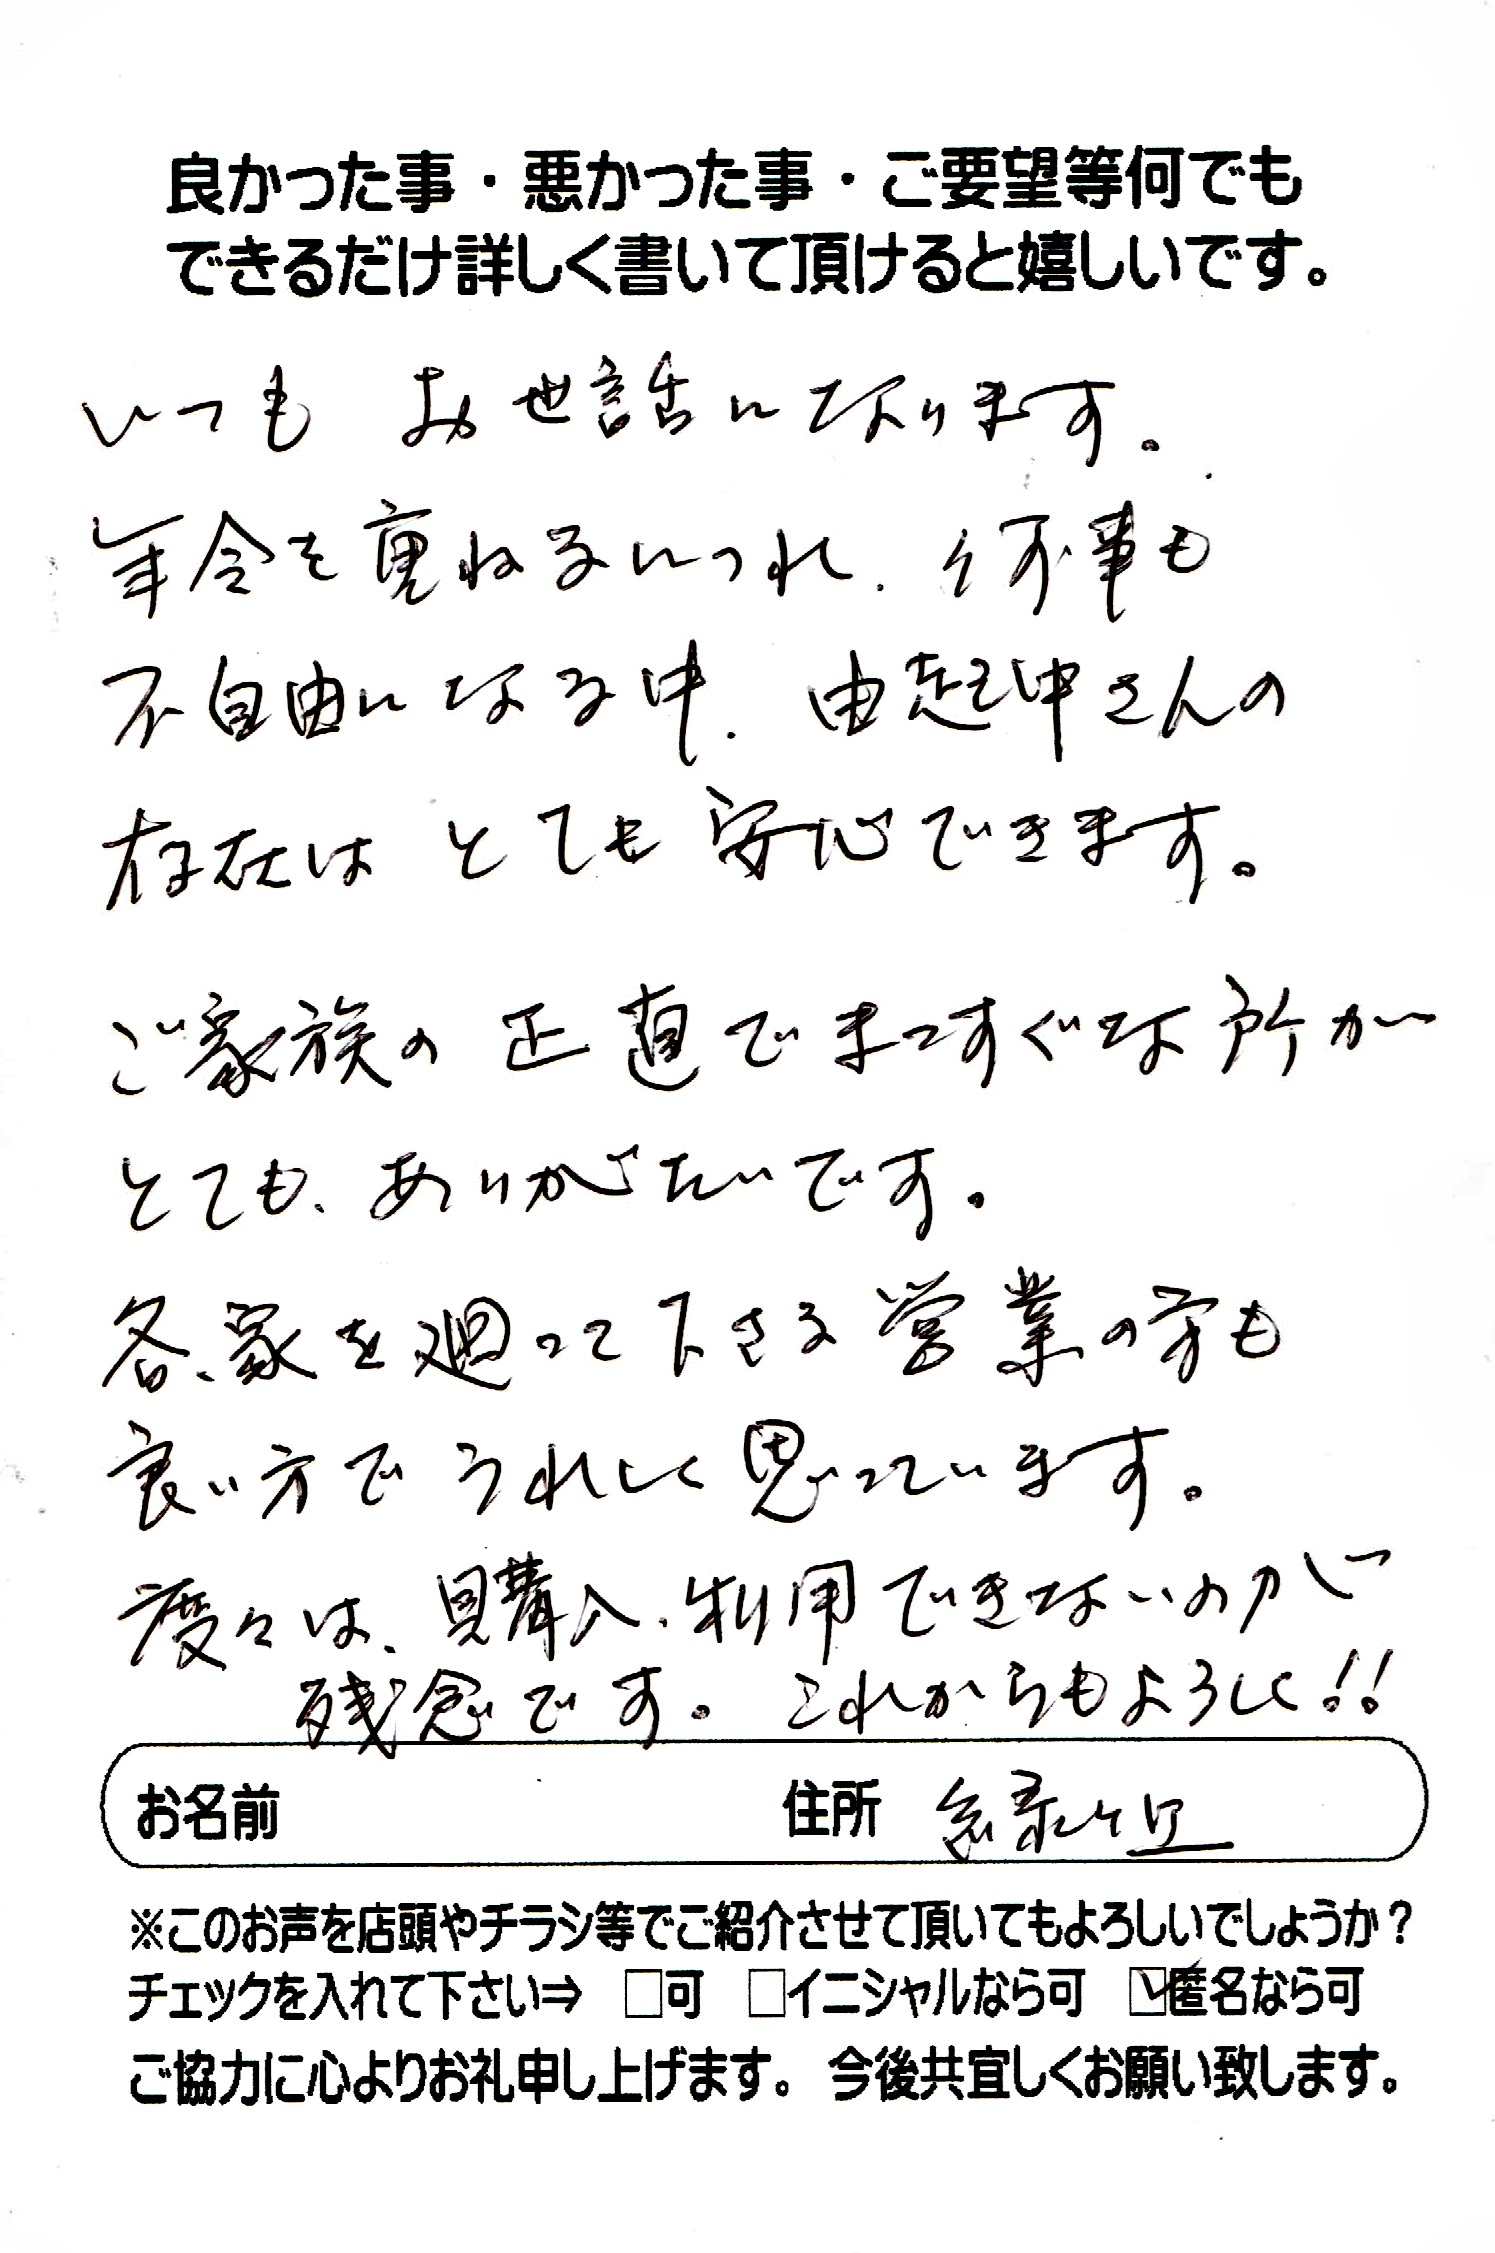 良かった事・悪かった事・ご要望等何でも
できるだけ詳しく書いて頂けると嬉しいです。
いつも お世話になります。
年令を重ねるにつれ、何事も
不自由になる中、由起中さんの
存在は とても安心できます。
ご家族の正直でまっすぐな所が
とても、ありがたいです。
各、家を廻って下さる営業の方も
良い方で うれしく思っています。
度々は、購入、利用できないのが
残念です。 これからもよろしく!!
お名前 住所 緑ケ丘
※このお声を店頭やチラシ等でご紹介させて頂いてもよろしいでしょうか？
チェックを入れて下さい⇒ □可 □イニシャルなら可 ☑匿名なら可
ご協力に心よりお礼申し上げます。今後共宜しくお願い致します。